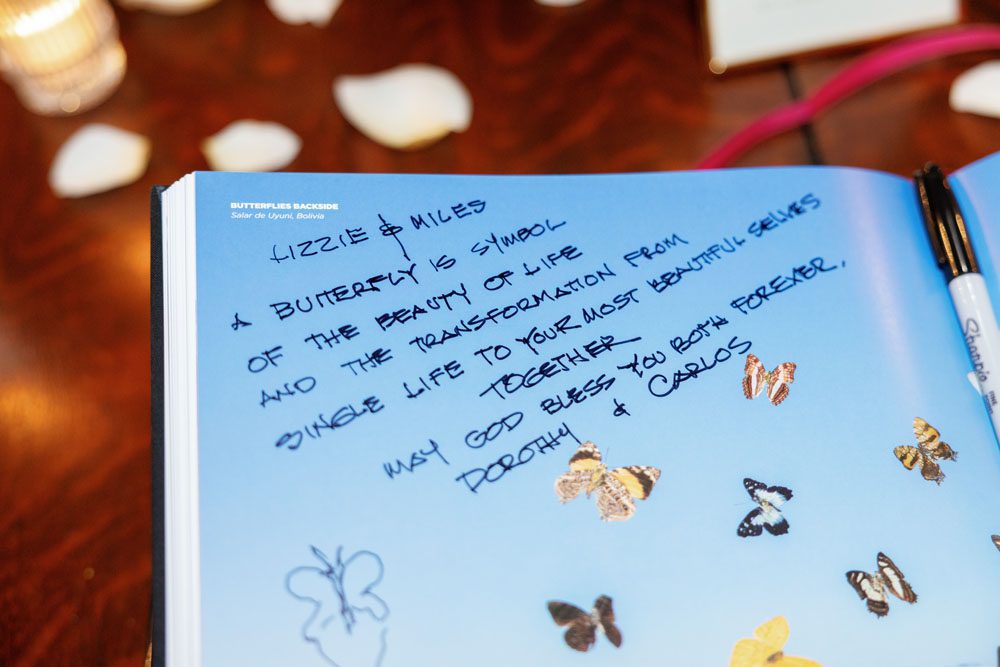 BUTTERFLIES BACKSIDE
Salar de Uyuni, Bolivia
LIZZIE & MILES
A BUTTERFLY IS SYMBOL
OF THE BEAUTY OF LIFE
AND THE TRANSFORMATION FROM
SINGLE LIFE TO YOUR MOST BEAUTIFUL SELVES
TOGETHER
MAY GOD BLESS YOU BOTH FOREVER.
DOROTHY & CARLOS
Sharpie